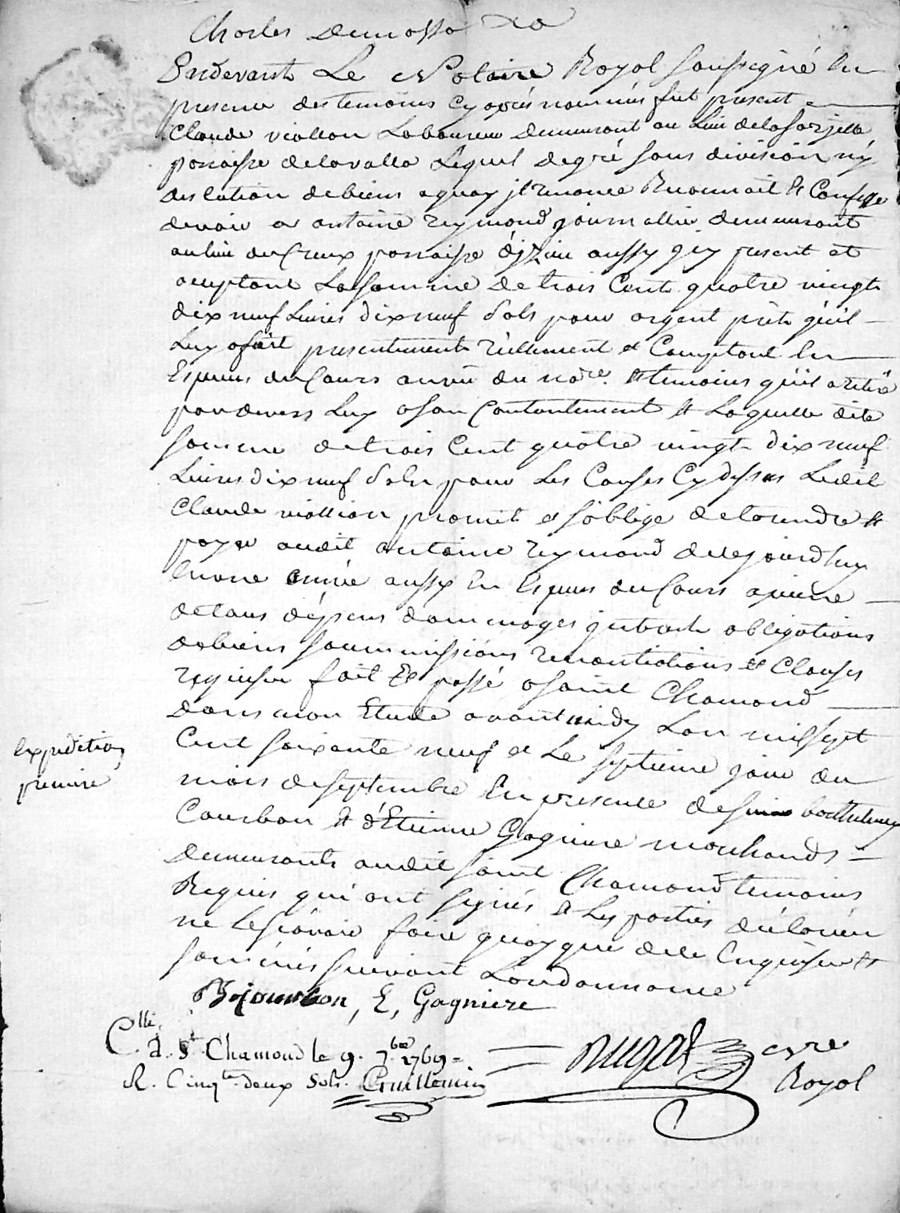 Pardevant Le Notaire Royal soussigné En
presence des temoins Cy apres nommés fut present
Claude viallion Laboureur demeurant au Lieu de la
parroisse de lavalla Lequel de gré sans division ny
discution de biens a quoy jl renonce Reconnoit et Confesse
devoir a antoine reymond journallier demeurant
au lieu du Creux parroisse d'jzieu aussy jcy present et
aceptant La somme de trois Cent quatre vingt
dix neuf Livres dix neuf sols pour argent prêté qu'il
Luy a fait presentement réellement et Comptant En
Especes du Cours a vüe du no.re et temoins qu'il a retiré
pardevers Luy a son Contentement et Laquelle dite
somme de trois Cent quatre vingt dix neuf
Livres dix neuf sols pour Les Causes Cy dessus Ledit
Claude viallion promet et s'oblige de rendre et
payer audit antoine reymond de ce jourd'huy
En une année aussy En Especes du Cours a peine
de tous dépens dommages jnterets obligations
de biens soummissions renontiations et Clauses
requises fait Et passé a saint Chamond
dans mon Etude avant midy L'an mil sept
Cent soixante neuf et Le septieme jour du
mois de septembre En presence de barthelemy
Courbon et d'Etienne Gagniere marchands
demeurants audit saint Chamond temoins
Requis qui ont signés et Les parties déclarées
ne Le sçavoir faire quoyque de ce Enquises et
sommées suivant L'ordonnance
Expedition
premiere
B Courbon, E, Gagniere
C.llé a S.t Chamond le 9. 7.bre 1769
R. Cinq.te deux Sols. Guillemin
Royal